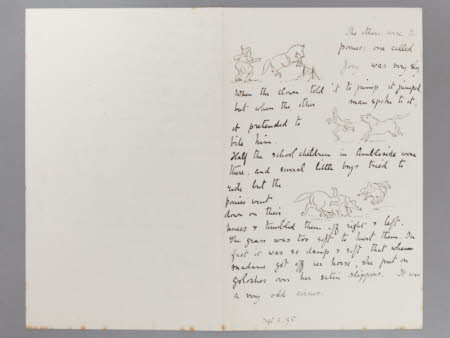 The others were 2
ponies; one called
Joey was very shy
When the clown told it to jump it jumped
but when the other man spoke to it,
it pretended to
bite him.
Half the school children in Ambleside were
there, and several little boys tried to
ride but the
ponies went
down on their
knees & tumbled them off right & left.
The grass was too soft to hurt them. In
fact it was so damp & soft that when
madame got off her horse, she put on
goloshes over her satin slippers. It was
a very odd circus.